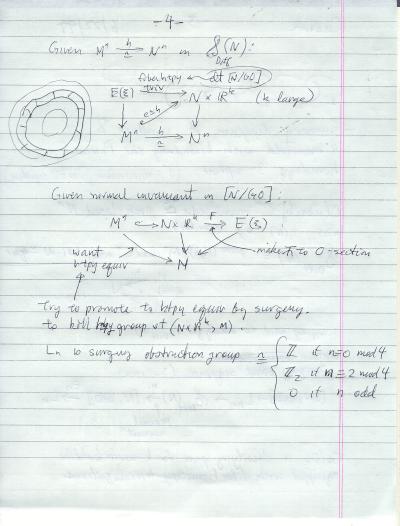 -4-
Given Mⁿ —h/≃→ Nⁿ in 𝒮_Diff (N):
fiber htpy elt [N/G/O]
E(ξ) —triv→ N × ℝᵏ (k large)
Mⁿ —h/≃→ Nⁿ
Given normal invariant in [N/G/O]:
Mⁿ ↪ N × ℝᵏ —F→ E(ξ)
want make ⋔ to 0-section
htpy equiv N
Try to promote to htpy equiv by surgery.
to kill group of (N×ℝᵏ, M).
Lₙ is surgery obstruction group ≅ { ℤ if n≡0 mod 4
ℤ₂ if n≡2 mod 4
0 if n odd